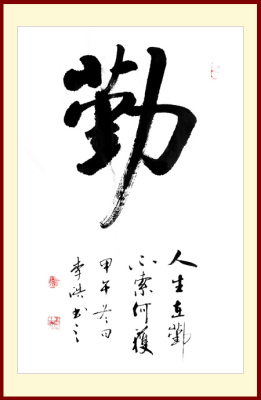 勤
人生在勤
不索何獲
甲午冬日
李书之